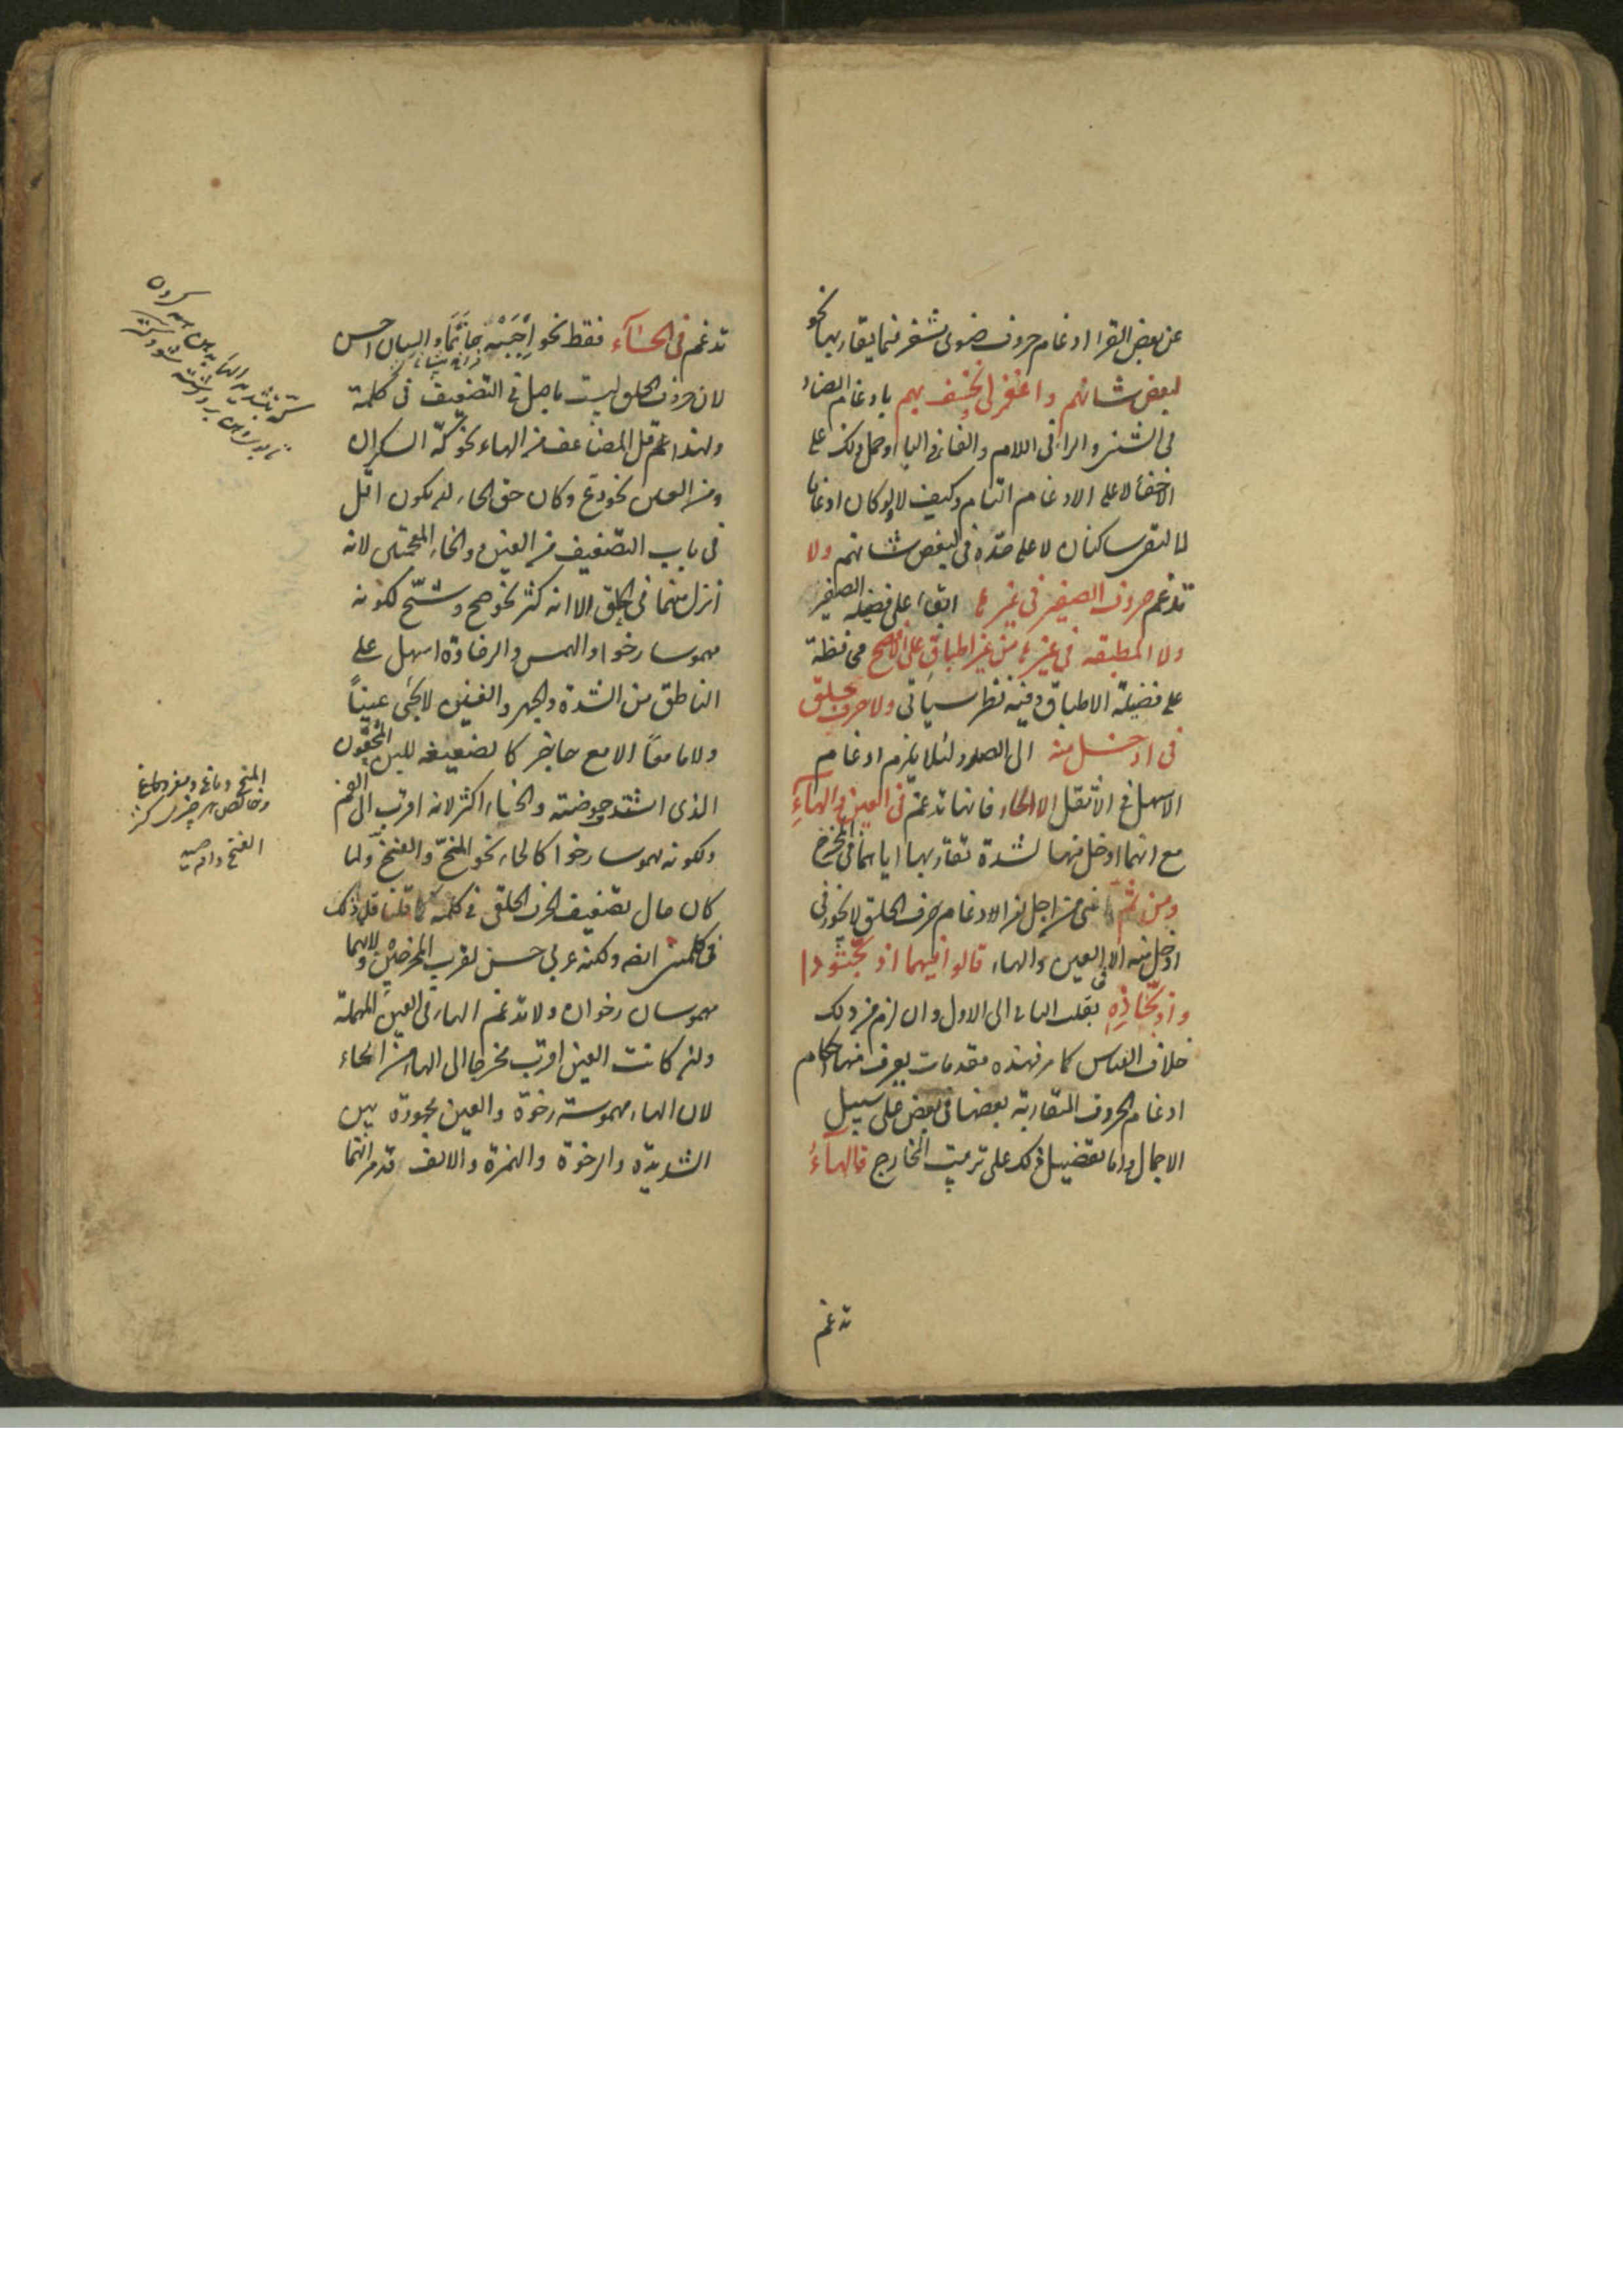 عن بعض القرا ادغام حروف ضوى مشفر فيما يقاربها نحو
لبعض شانهم واغفر لى نخسف بهم بادغام الضاد
فى الشين والراء فى اللام والفاء فى الباء وحمل ذلك على
الاخفا لا على الادغام التام وكيف لا ولو كان ادغاما
لالتقى ساكنان لا على حده فى لبعض شانهم ولا
تدغم حروف الصفير فى غيرها ابقاء على فضيلة الصفير
ولا المطبقة فى غيرها من غير اطباق على الافصح محافظة
على فضيلة الاطباق وفيه نظر سياتى ولا حرف حلق
فى ادخل منه الى الصدر لئلا يلزم ادغام
الاسهل فى الاثقل الا الحاء فانها تدغم فى العين والهاء
مع انهما ادخل منها لشدة تقاربها اياهما فى المخرج
ومن ثم اى من اجل ان ادغام حرف الحلق لا يجوز فى
ادخل منه الا فى العين والهاء قالوا فيهما اذبحتودا
واذبحاذه بقلب الثانى الى الاول وان لزم من ذلك
خلاف القياس كما مر فهذه مقدمات يعرف منها احكام
ادغام الحروف المتقاربة بعضها فى بعض على سبيل
الاجمال واما تفصيل ذلك على ترتيب المخارج فالهاء
تدغم
تدغم فى الحاء فقط نحو اجبه حاتما والبيان احسن
لان حروف الحلق ليست باصل فى التضعيف فى كلمة
ولهذا قل المضاعف من الهاء نحو كه السكران
ومن العين نحو دع وكان حق الحاء ان يكون اقل
فى باب التضعيف من الغين والخاء المعجمتين لانه
انزل منهما فى الحلق الا انه كثر نحو صح وشح لكونه
مهموسا رخوا والهمس والرخاوة اسهل على
الناطق من الشدة والجهر والغين لا يجئ عينا
ولا ما معا الا مع حاجز كالضغيغه للبن المحقون
الذى اشتد حموضته والخاء اكثر لانه اقرب الى الفم
ولكونه مهموسا رخوا كالحاء نحو المخ والفخ ولما
كان حال تضعيف الحرف الحلقى فى كلمة كما قلنا قل ذلك
فى كلمتين ايضا ولكنه عربى حسن لقرب المخرجين ولانهما
مهموسان رخوان ولا تدغم الهاء فى العين المهملة
وان كانت العين اقرب مخرجا الى الهاء من الحاء
لان الهاء مهموسة رخوة والعين مجهورة بين
الشديدة والرخوة والهمزة والالف قد مر انهما
المخ دماغ ومغز دماغ
وخالص هر چيزى كنز
الفخ دام صيد